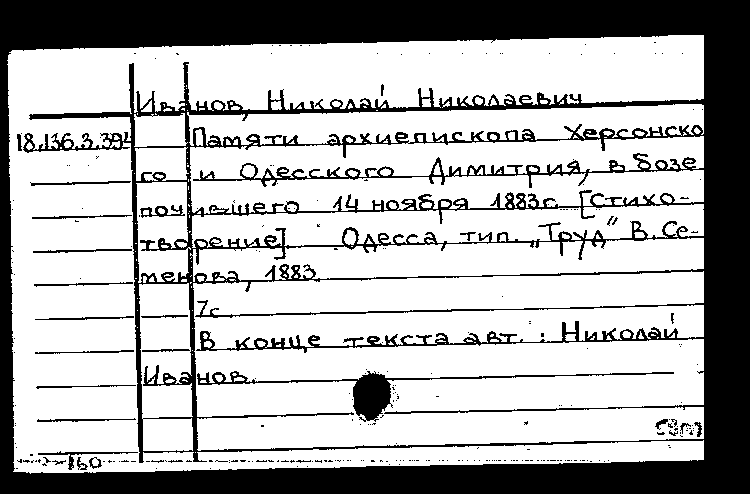 Иванов, Николай Николаевич
18.136.3.394 Памяти архиепископа Херсонско
го и Одесского Димитрия, в бозе
почившего 14 ноября 1883г. [Стихо-
творение]. Одесса, тип. „Труд" В. Се-
менова, 1883.
7с.
В конце текста авт.: Николай
Иванов.